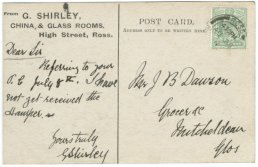 From G. SHIRLEY,
CHINA, & GLASS ROOMS,
High Street, Ross.
POST CARD.
ADDRESS ONLY TO BE WRITTEN HERE.
Dear Sir
Referring to your
P.C. July 8th. I have
not yet received the
Hamper.
Yours truly
G Shirley
Mr J B Dawson
Grocer &c
Mitcheldean
Glos